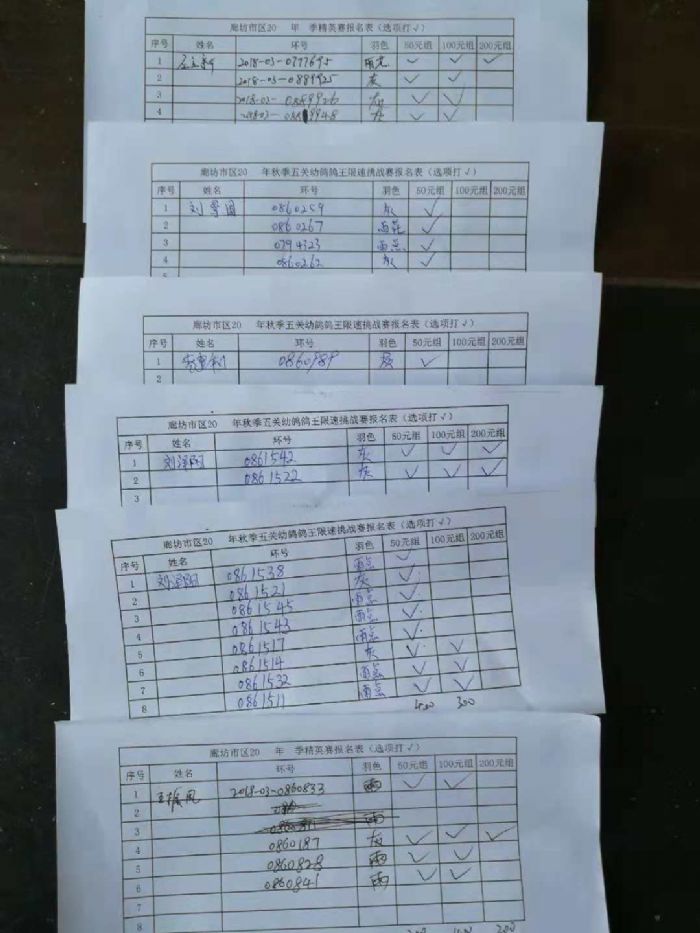 廊坊市区20 年 季精英赛报名表(选项打√)
序号 姓名 环号 羽色 50元组 100元组 200元组
1 2018-03-0777695 雨点 ✓ ✓ ✓
2 2018-03-0889925 灰 ✓ ✓
3 2018-03-0889926 灰 ✓ ✓
4 2018-03- 9948 灰 ✓ ✓
廊坊市区20 年秋季五关幼鸽鸽王限速挑战赛报名表(选项打√)
序号 姓名 环号 羽色 50元组 100元组 200元组
1 刘 国 0860259 灰 ✓
2 0860267 雨花 ✓
3 0794323 雨点 ✓
4 0860262 灰 ✓
5
廊坊市区20 年秋季五关幼鸽鸽王限速挑战赛报名表(选项打√)
序号 姓名 环号 羽色 50元组 100元组 200元组
1 0860989 灰 ✓
2
廊坊市区20 年秋季五关幼鸽鸽王限速挑战赛报名表(选项打√)
序号 姓名 环号 羽色 50元组 100元组 200元组
1 刘泽阳 0861542 灰 ✓ ✓ ✓
2 0861522 灰 ✓ ✓ ✓
3
廊坊市区20 年秋季五关幼鸽鸽王限速挑战赛报名表(选项打√)
序号 姓名 环号 羽色 50元组 100元组 200元组
1 刘泽阳 0861538 雨点 ✓
2 0861521 灰 ✓
3 0861545 雨点 ✓
4 0861543 雨点 ✓
5 0861517 雨点 ✓
6 0861514 灰 ✓ ✓
7 0861532 雨点 ✓ ✓
8 0861511 雨点 ✓ ✓
400 300
廊坊市区20 年 季精英赛报名表(选项打√)
序号 姓名 环号 羽色 50元组 100元组 200元组
1 王 凤 2018-03-0860833 雨 ✓ ✓
2
3 雨
4 0860187 灰 ✓ ✓ ✓
5 0860828 雨 ✓ ✓
6 0860841 雨 ✓ ✓
8